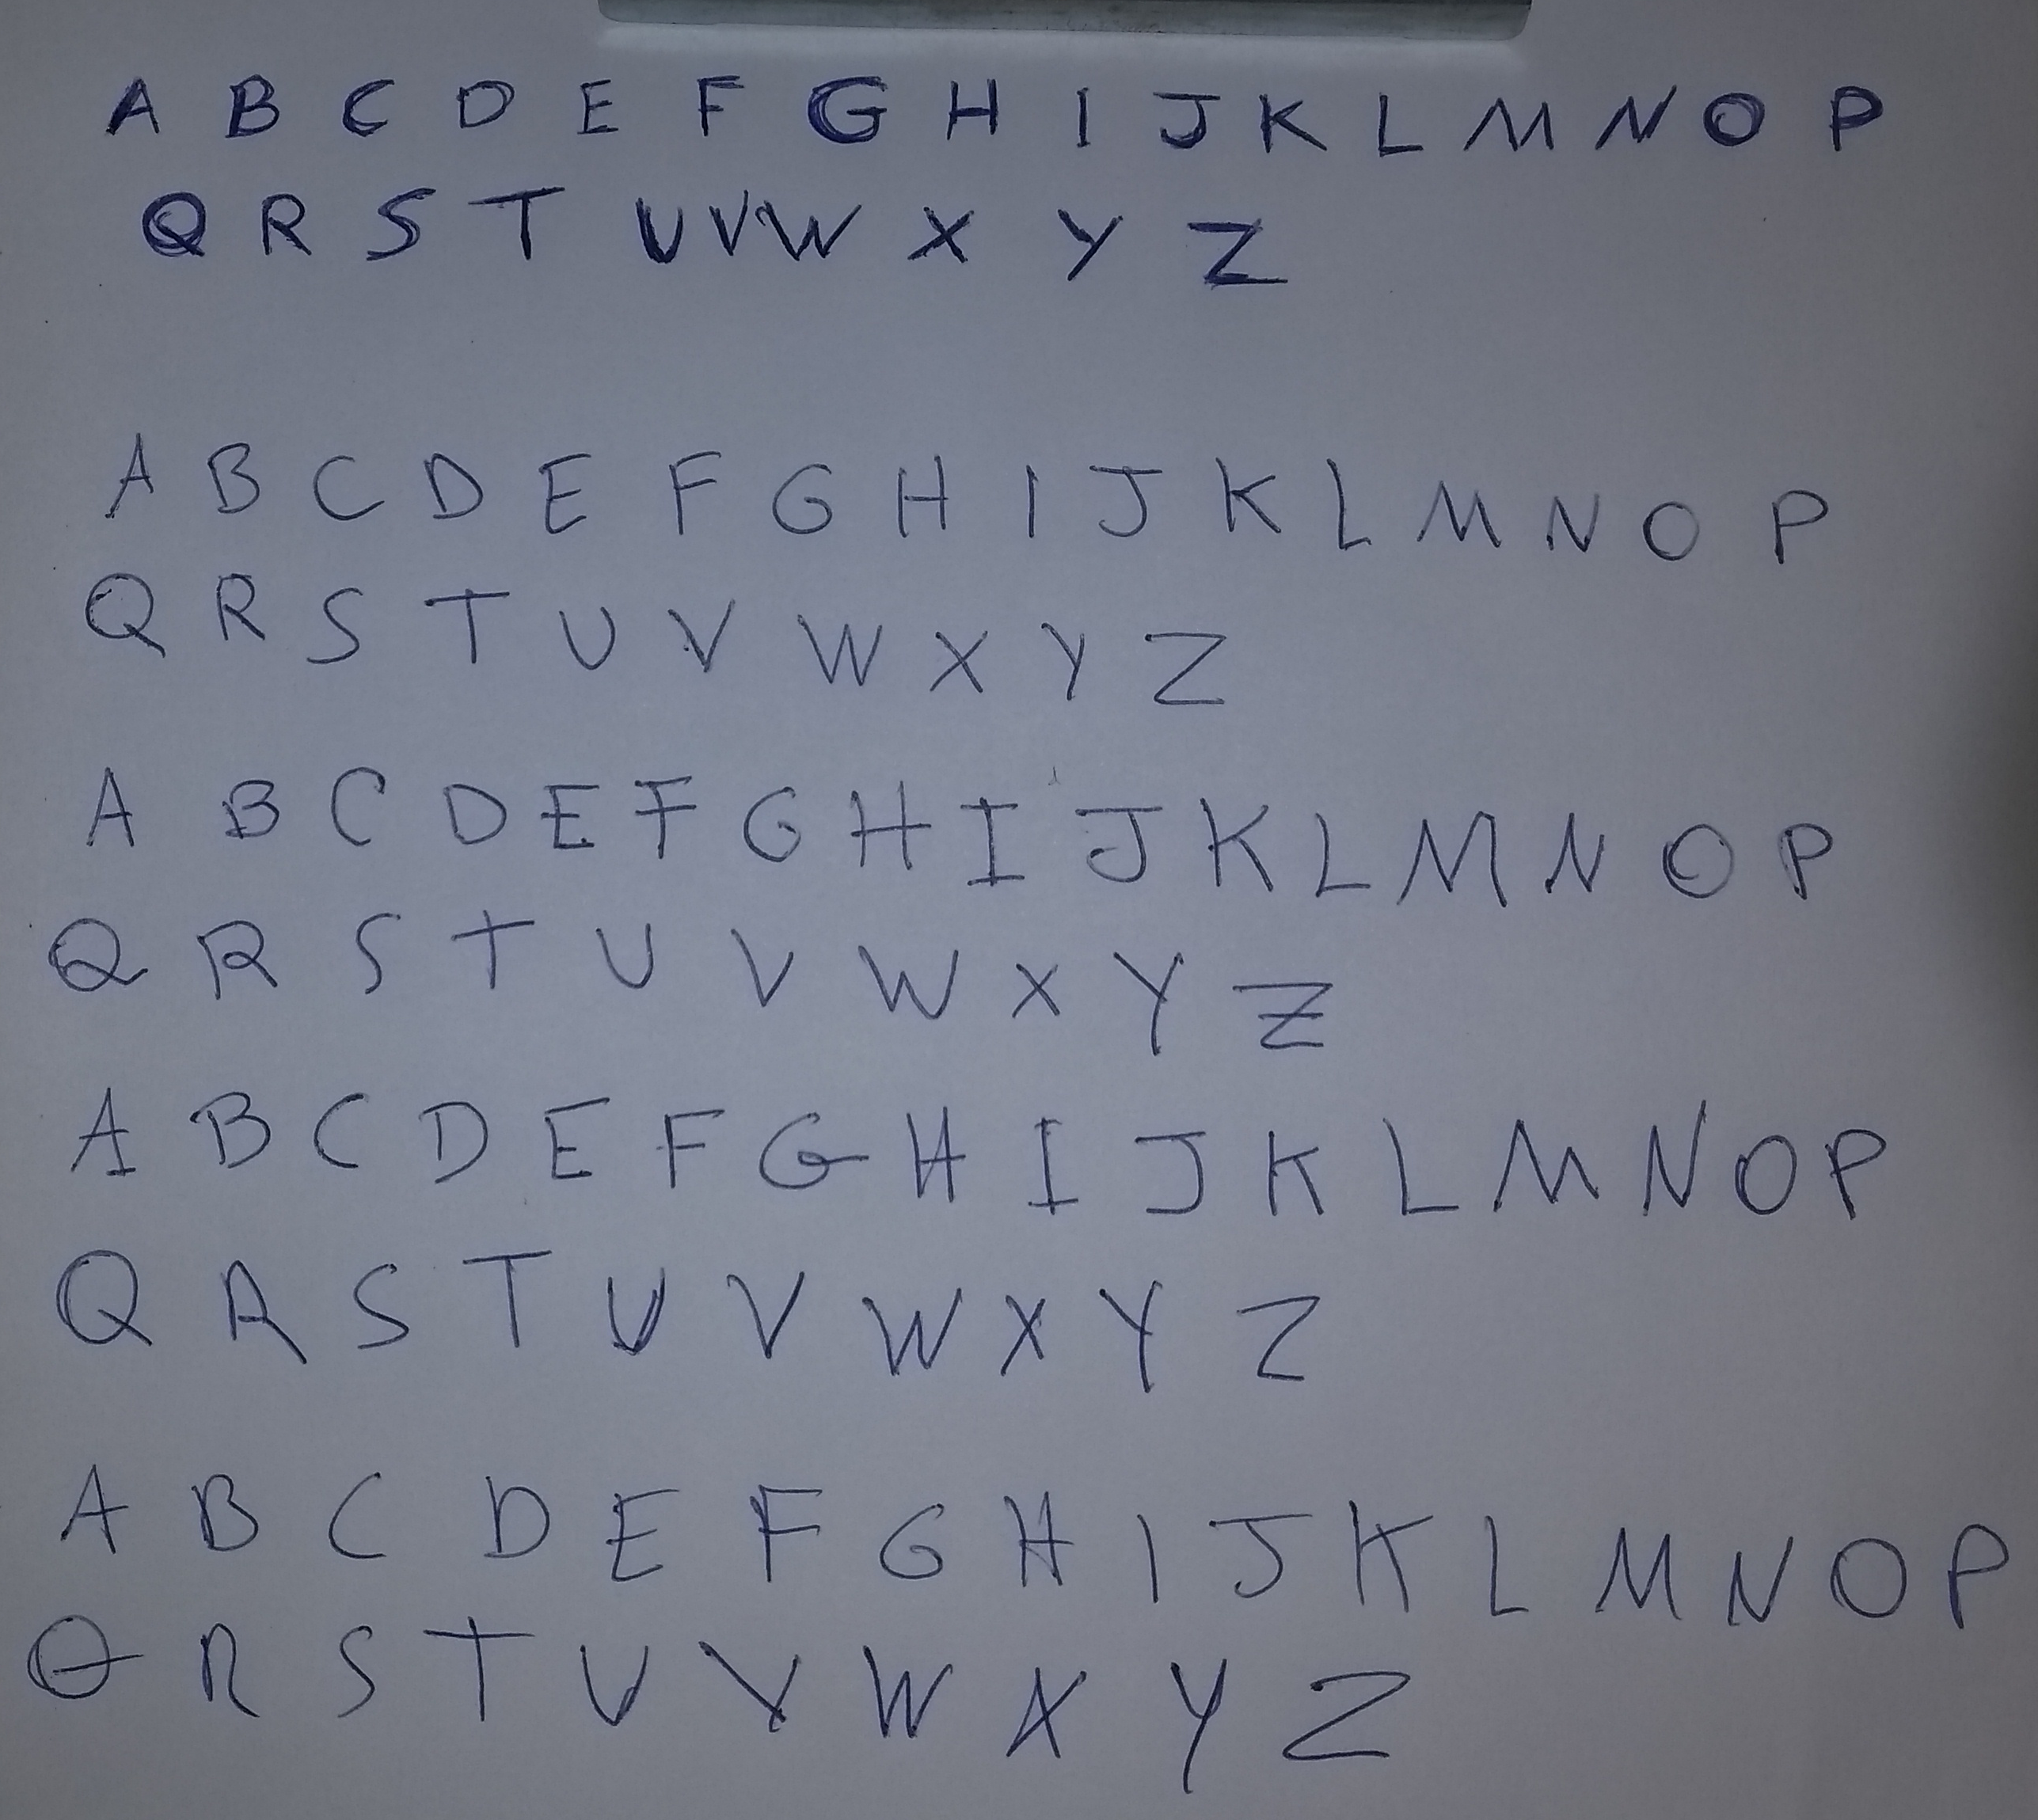 A B C D E F G H I J K L M N O P
Q R S T U V W X Y Z
A B C D E F G H I J K L M N O P
Q R S T U V W X Y Z
A B C D E F G H I J K L M N O P
Q R S T U V W X Y Z
A B C D E F G H I J K L M N O P
Q R S T U V W X Y Z
A B C D E F G H I J K L M N O P
Q R S T U V W X Y Z